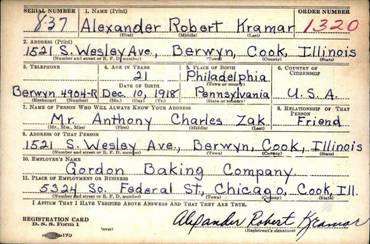 SERIAL NUMBER 1. NAME (Print) ORDER NUMBER
837 Alexander Robert Kramar 1320
(First) (Middle) (Last)
2. ADDRESS (Print)
1521 S. Wesley Ave., Berwyn, Cook, Illinois
(Number and street or R. F. D. number) (Town) (County) (State)
3. TELEPHONE 4. AGE IN YEARS 5. PLACE OF BIRTH 6. COUNTRY OF CITIZENSHIP
21 Philadelphia
DATE OF BIRTH (Town or county)
Berwyn 4904-R Dec. 10, 1918 Pennsylvania U.S.A.
(Exchange) (Number) (Mo.) (Day) (Yr.) (State or country)
7. NAME OF PERSON WHO WILL ALWAYS KNOW YOUR ADDRESS 8. RELATIONSHIP OF THAT PERSON
Mr. Anthony Charles Zak Friend
(Mr., Mrs., Miss) (First) (Middle) (Last)
9. ADDRESS OF THAT PERSON
1521 S. Wesley Ave., Berwyn, Cook, Illinois
(Number and street or R. F. D. number) (Town) (County) (State)
10. EMPLOYER'S NAME
Gordon Baking Company
11. PLACE OF EMPLOYMENT OR BUSINESS
5324 So. Federal St., Chicago, Cook, Ill.
(Number and street or R. F. D. number) (Town) (County) (State)
I AFFIRM THAT I HAVE VERIFIED ABOVE ANSWERS AND THAT THEY ARE TRUE.
REGISTRATION CARD Alexander Robert Kramar
D. S. S. Form 1 (Registrant's signature)